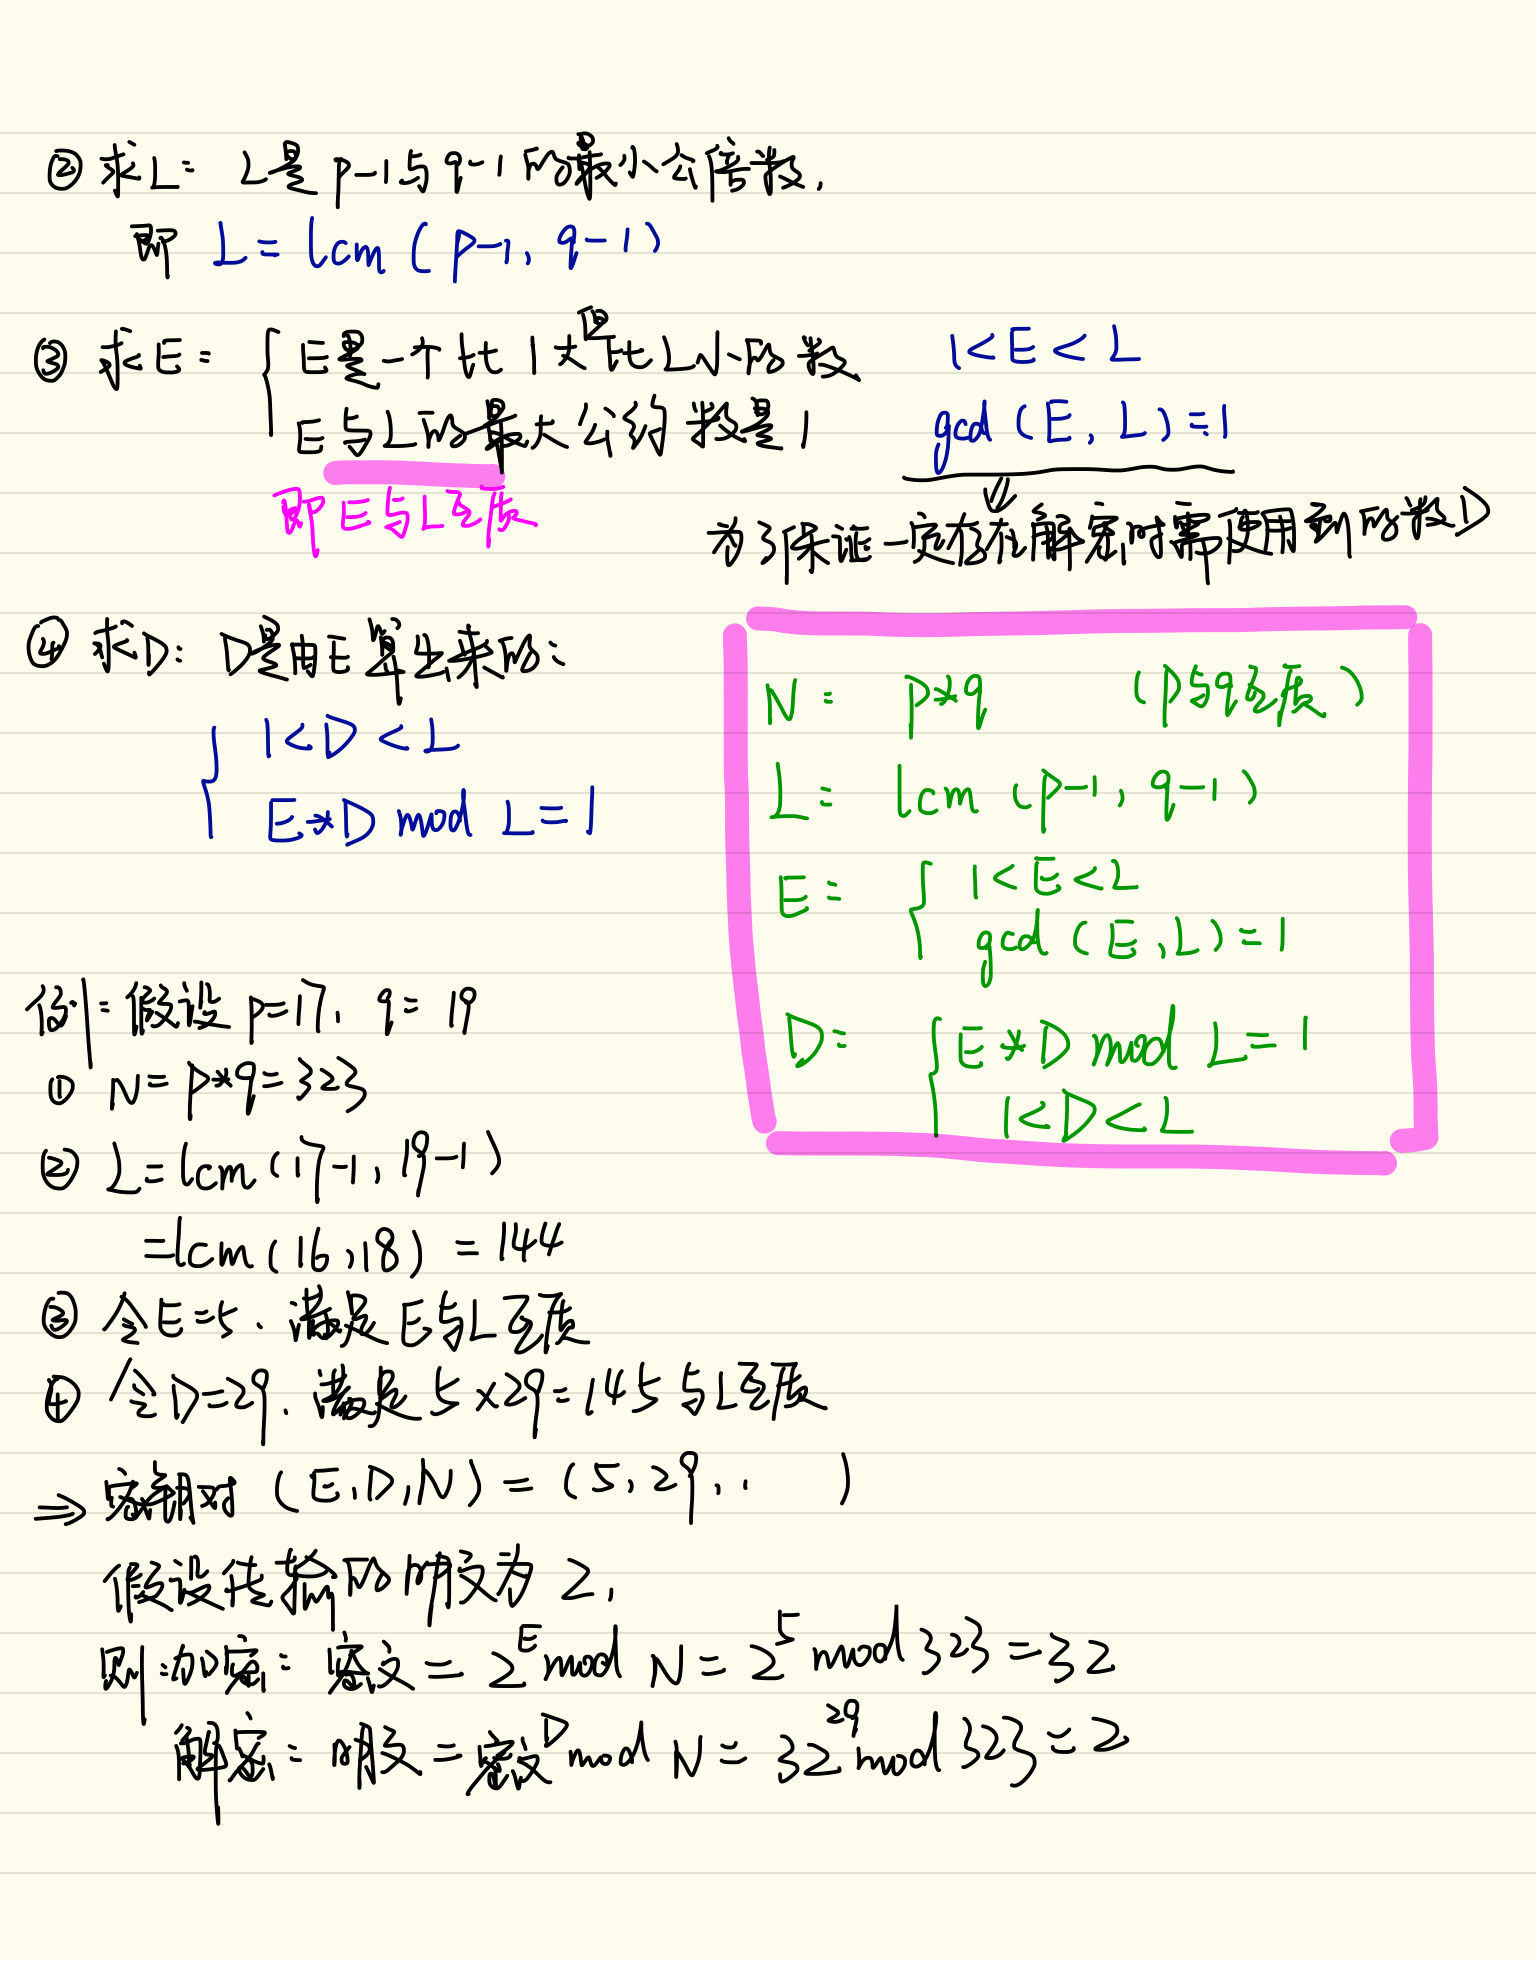 ② 求L: L是p-1与q-1的最小公倍数,
即 L = lcm ( p-1, q-1 )
③ 求E: { E是一个比1大但比L小的数
E与L的最大公约数是1
1 < E < L
gcd (E, L) = 1
即E与L互质
为了保证一定存在解密时需使用到的数D
④ 求D: D是由E算出来的:
{ 1 < D < L
E*D mod L = 1
N: p*q (p与q互质)
L: lcm (p-1, q-1)
E: { 1 < E < L
gcd (E, L) = 1
D: { E*D mod L = 1
1 < D < L
例: 假设 p=17, q= 19
① N = p*q = 323
② L = lcm (17-1, 19-1)
= lcm (16, 18) = 144
③ 令E=5. 满足E与L互质
④ 令D=29. 满足 5×29=145与L互质
⇒ 密钥对 (E, D, N) = (5, 29, . )
假设传输的明文为 2,
则:加密: 密文 = 2^E mod N = 2^5 mod 323 = 32
解密: 明文 = 密文^D mod N = 32^29 mod 323 = 2